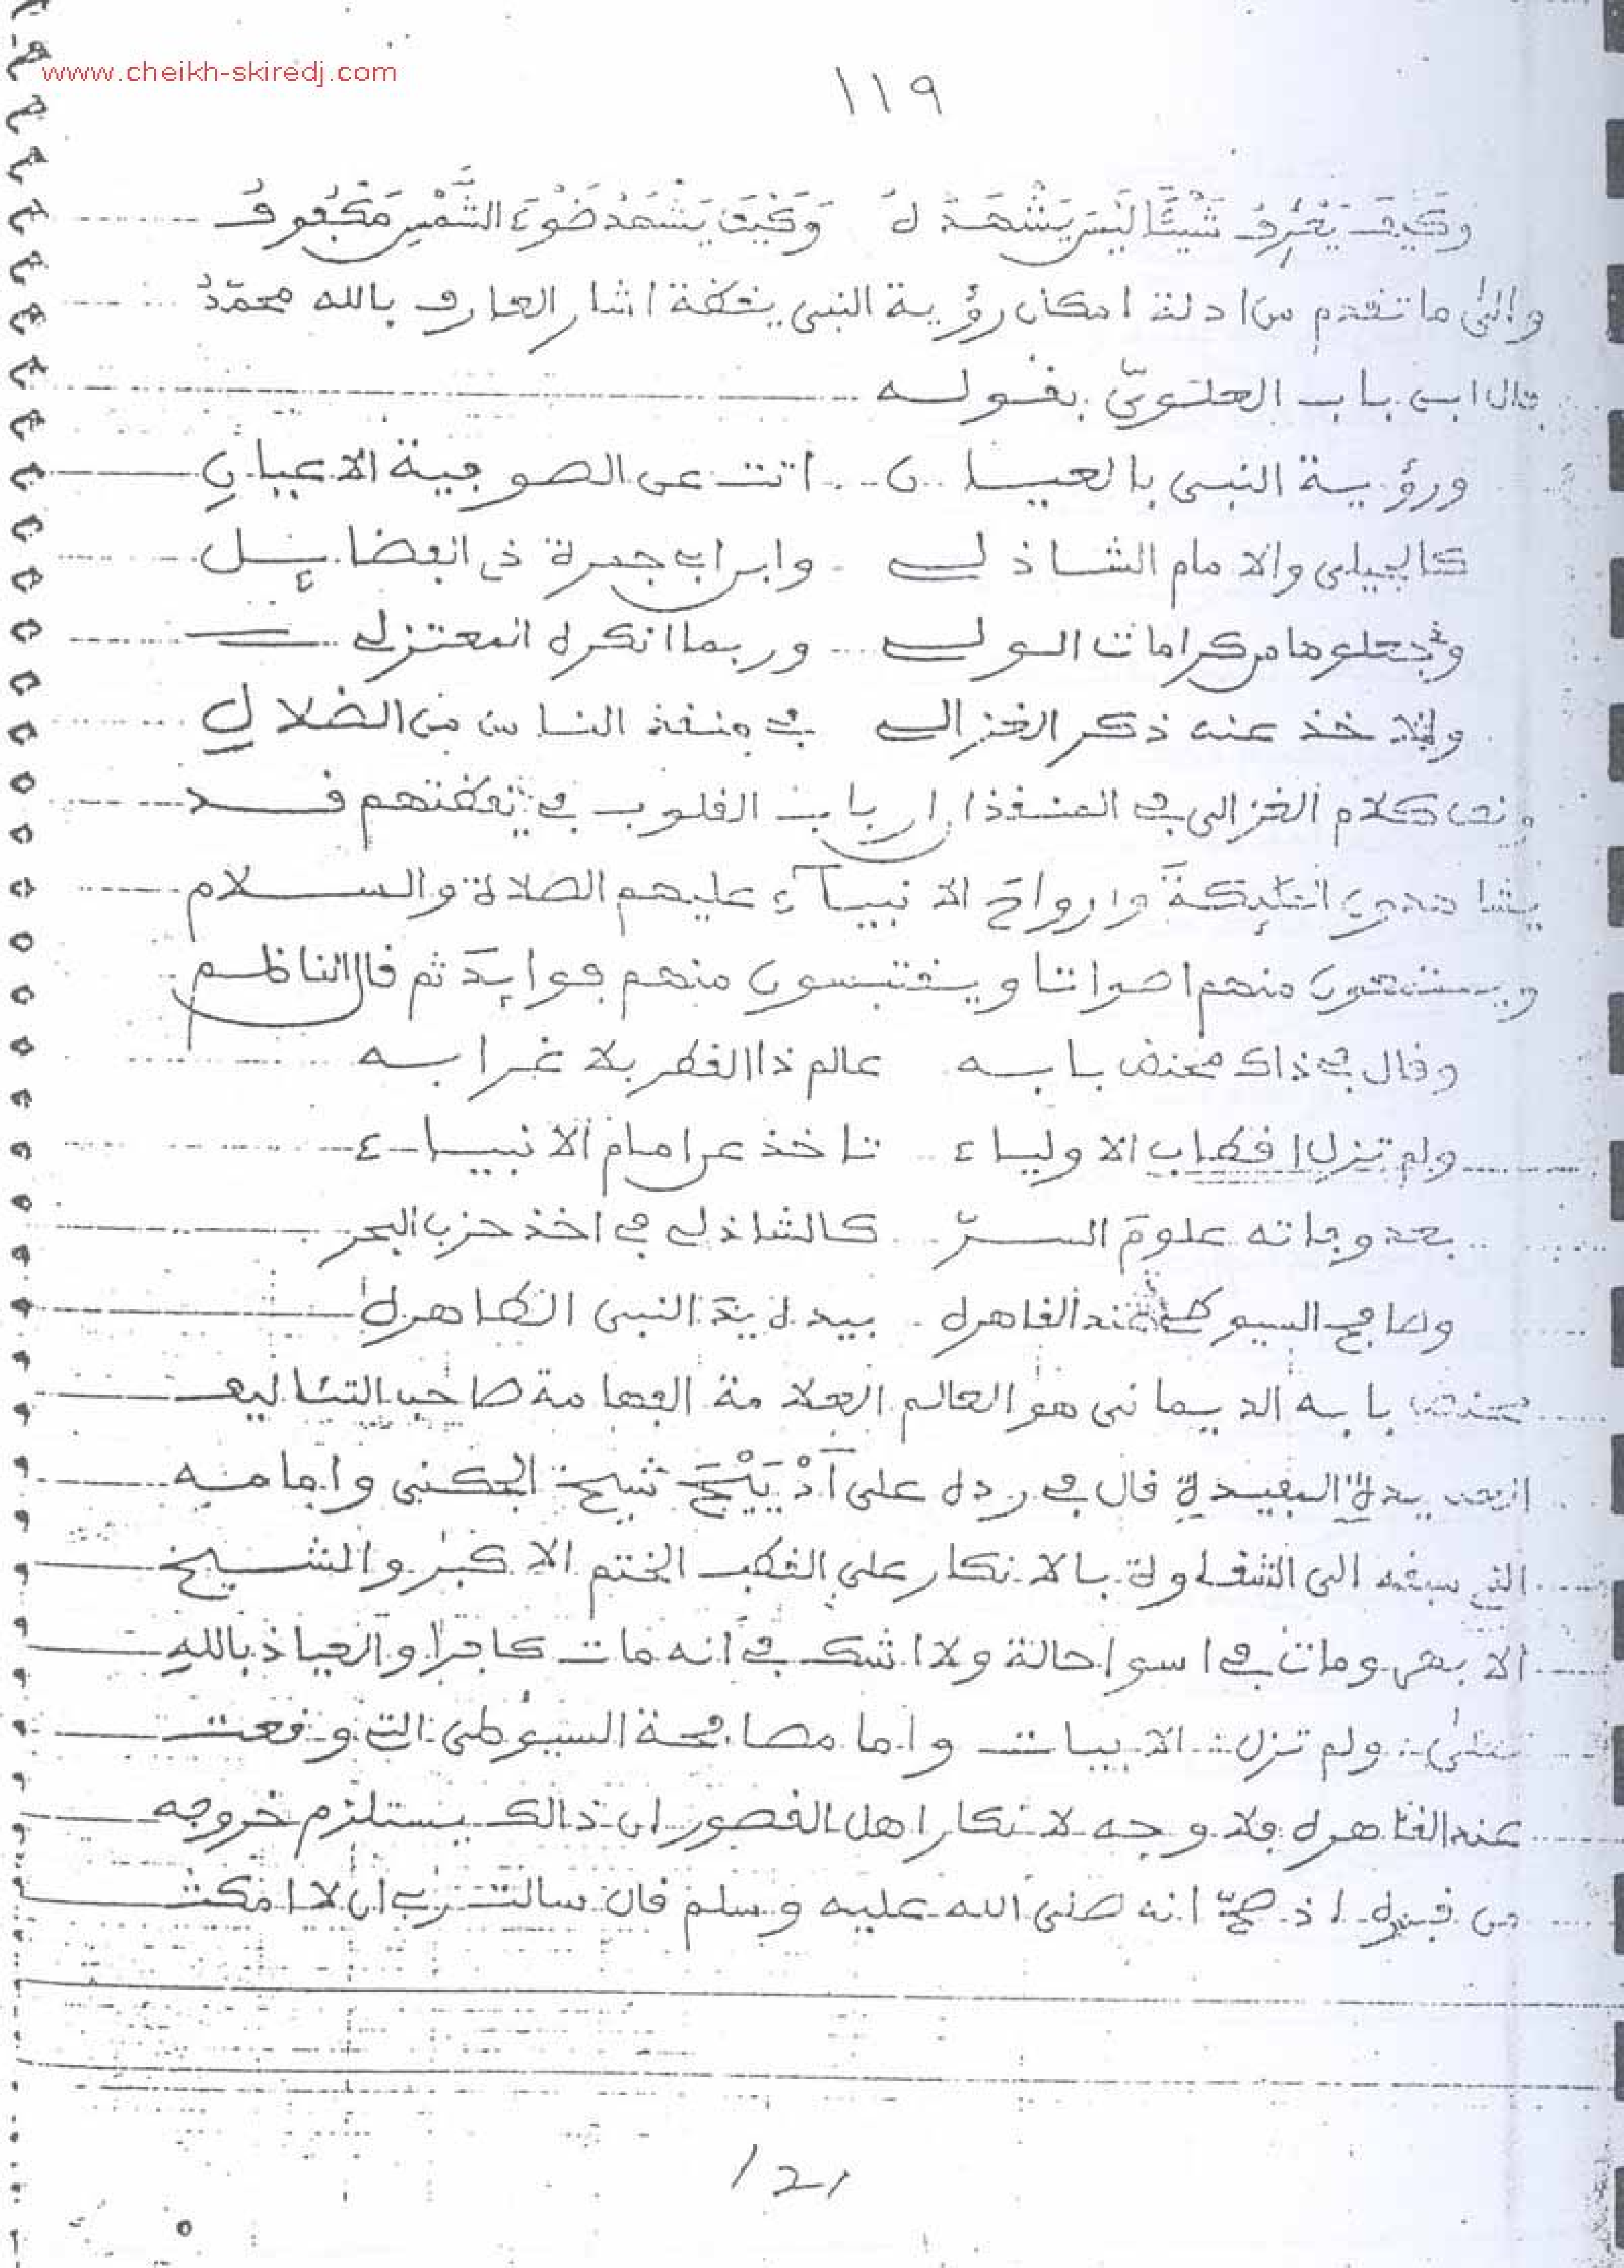 www.cheikh-skiredj.com
١١٩
وَكَيْفَ يَعْرِفُ شَيْئًا لَيْسَ يَشْهَدُهُ وَكَيْفَ يَشْهَدُ ضَوْءَ الشَّمْسِ مَكْفُوفُ
والى ما تقدم من ادلة امكان رؤية النبى يقظة اشار العارف بالله محمّدُ
فال ابن باب العلوىّ بقوله
ورؤية النبى بالعيان اتت عن الصوفية الاعيانِ
كالجيلى والامام الشاذلى وابن ابى جمرة ذى الفضائل
وتجعلوها من كرامات الولى وربما انكره المعتزلى
والاخذ عنه ذكر الغزالى فى منقذ الناس من الضلالِ
ونص كلام الغزالى فى المنقذ ارباب القلوب فى يقظتهم قد
يشاهدون الملئكةَ وارواحَ الانبيآء عليهم الصلاة والسلام
ويستمعون منهم اصواتا ويقتبسون منهم فوايدَ ثم قال الناظم
وقال فى ذاك محنض بابه عالم ذا القطر بلا غرابه
ولم تزل اقطاب الاولياء تاخذ عن امام الانبياء
بعد وفاته علومَ السرّ كالشاذلى فى اخذ حزب البحر
وصافح السيوطى عند القاهره بيده يدَ النبى الطاهره
محنض بابه الديمانى هو العالم العلامة الفهامة صاحب التئاليف
العديدة المفيدة قال فى رده على آدْ يَيْجَ شيخ الجكنى وامامه
الذى سبقه الى الشقاوة بالانكار على القطب الختم الاكبر والشيخ
الابهر ومات فى اسوإ حالة ولا اشك فى انه مات كافرا والعياذ بالله
تعلى ولم تزل الابيات واما مصافحة السيوطى التى وقعت
عند القاهره فلا وجه لانكار اهل القصور ان ذالك يستلزم خروجه
من قبره اذ صحّ انه صلى الله عليه وسلم قال سالت ربى ان لا امكث
121